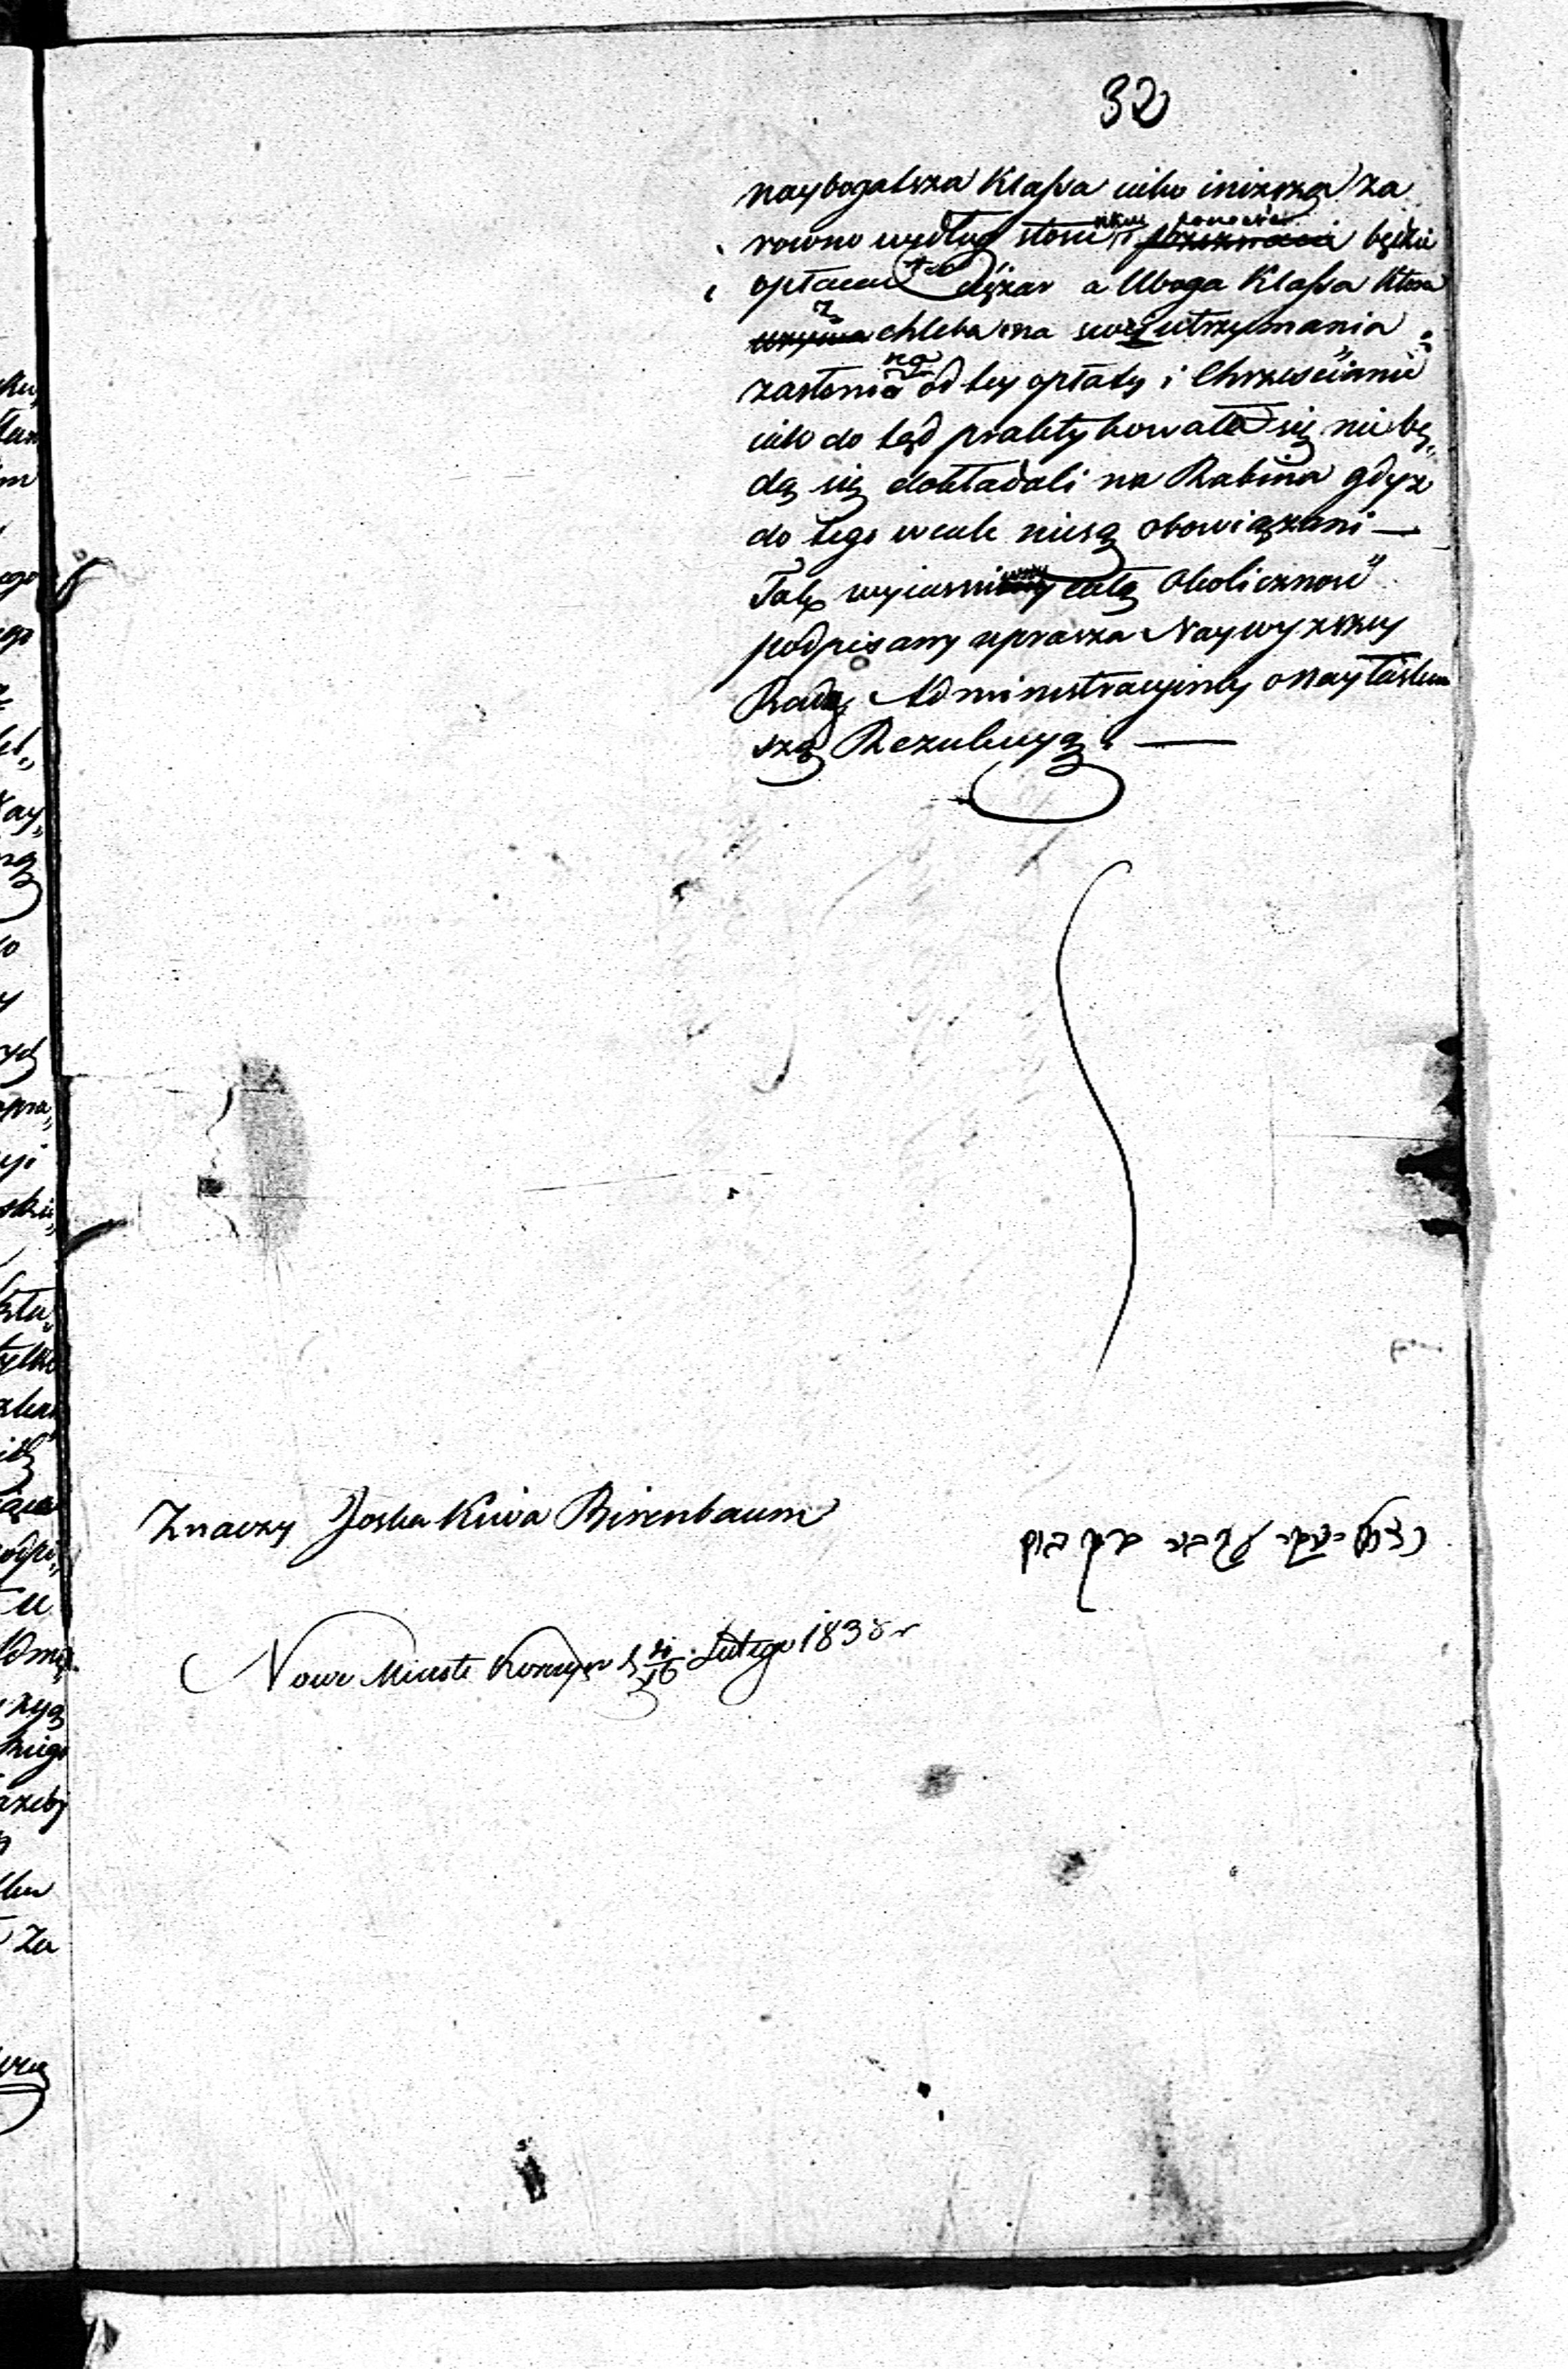 32
naybogatsza Klassa iako iniższa za
rowno według stosunku ponosić będzie
opłacać ten Ciężar a Uboga Klassa ktora
z chleba ma swoie utrzymania
zasłoniona od tey opłaty i Chrześcianie
iak do tąd praktykowało się nie bę„
dą się dokładali na Rabina gdyz
do tego wcale niesą obowiązani —
Tak wyiasniwszy całą Okoliczność
podpisany uprasza Naywyzszey
Rady Administracyiney o nayłaskaw
szą Rezulucyą. —
Znaczy Joska Kiwa Birenbaum
Nowe Miasto Korczyn d 4/16 Lutego 1838 r